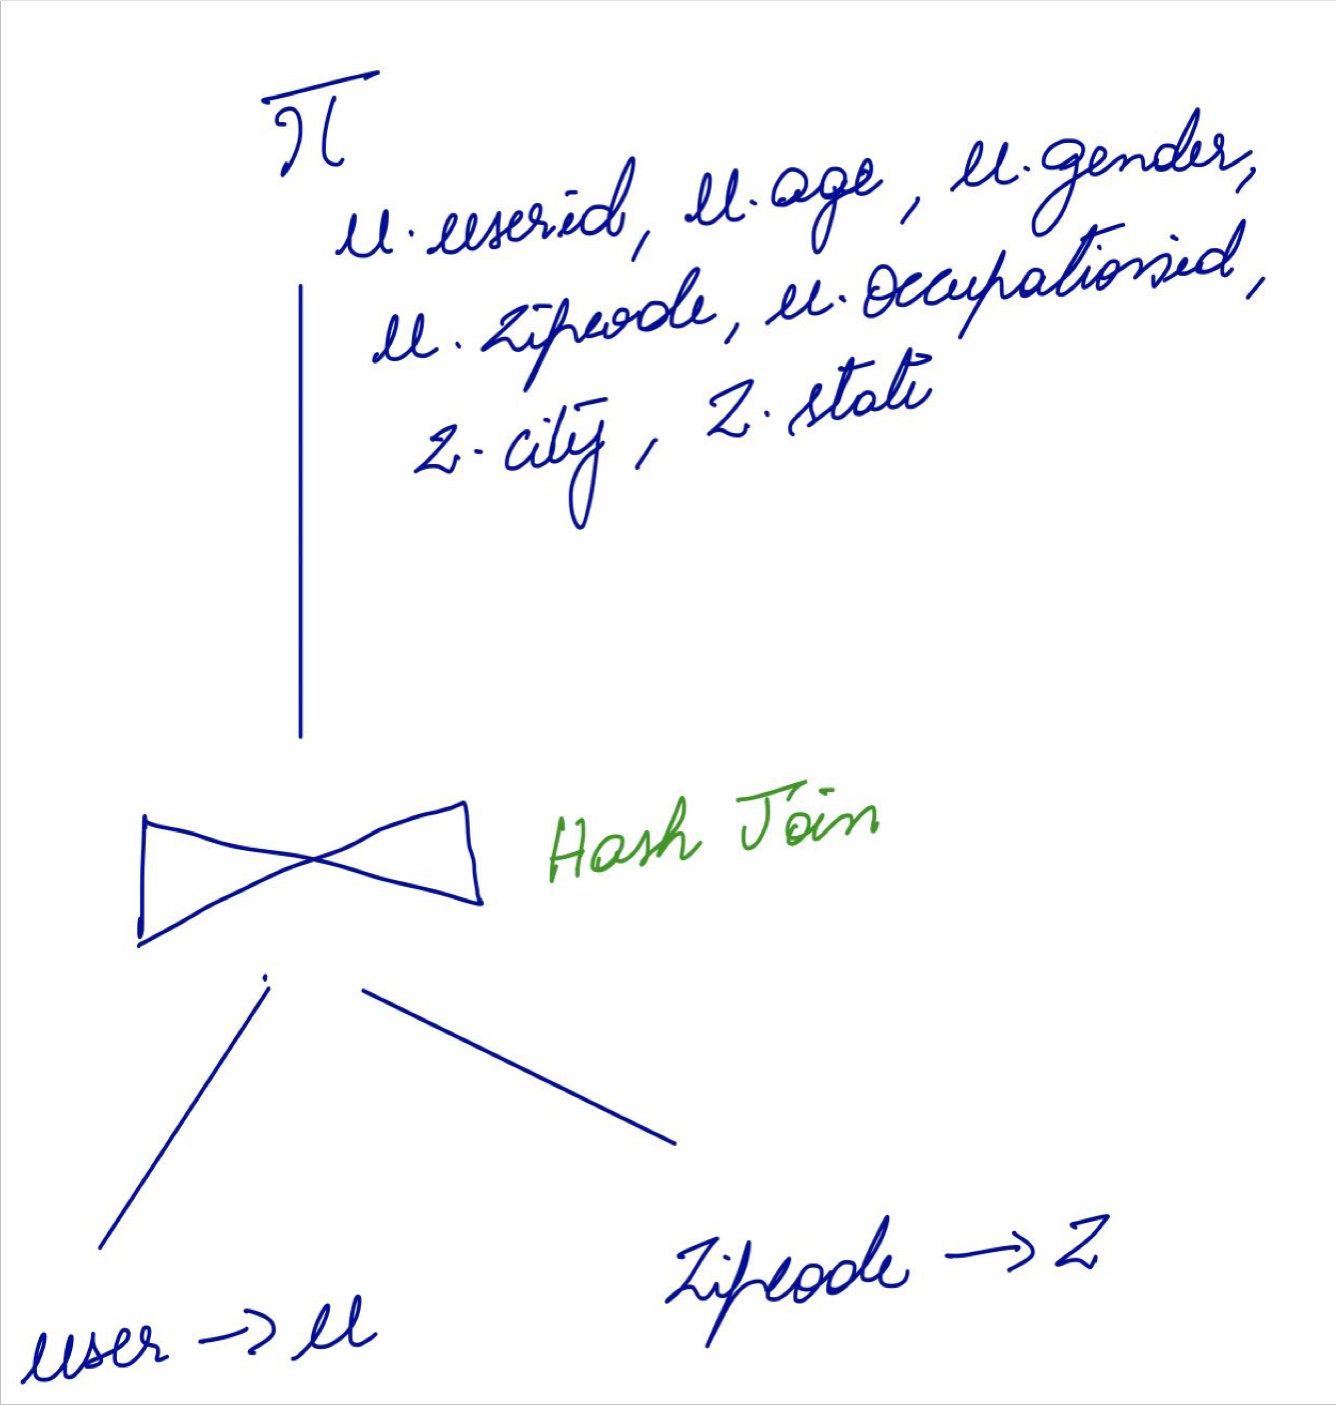 π
u.userid, u.age, u.gender,
u.zipcode, u.occupationid,
z.city, z.state
Hash Join
user → u
Zipcode → Z